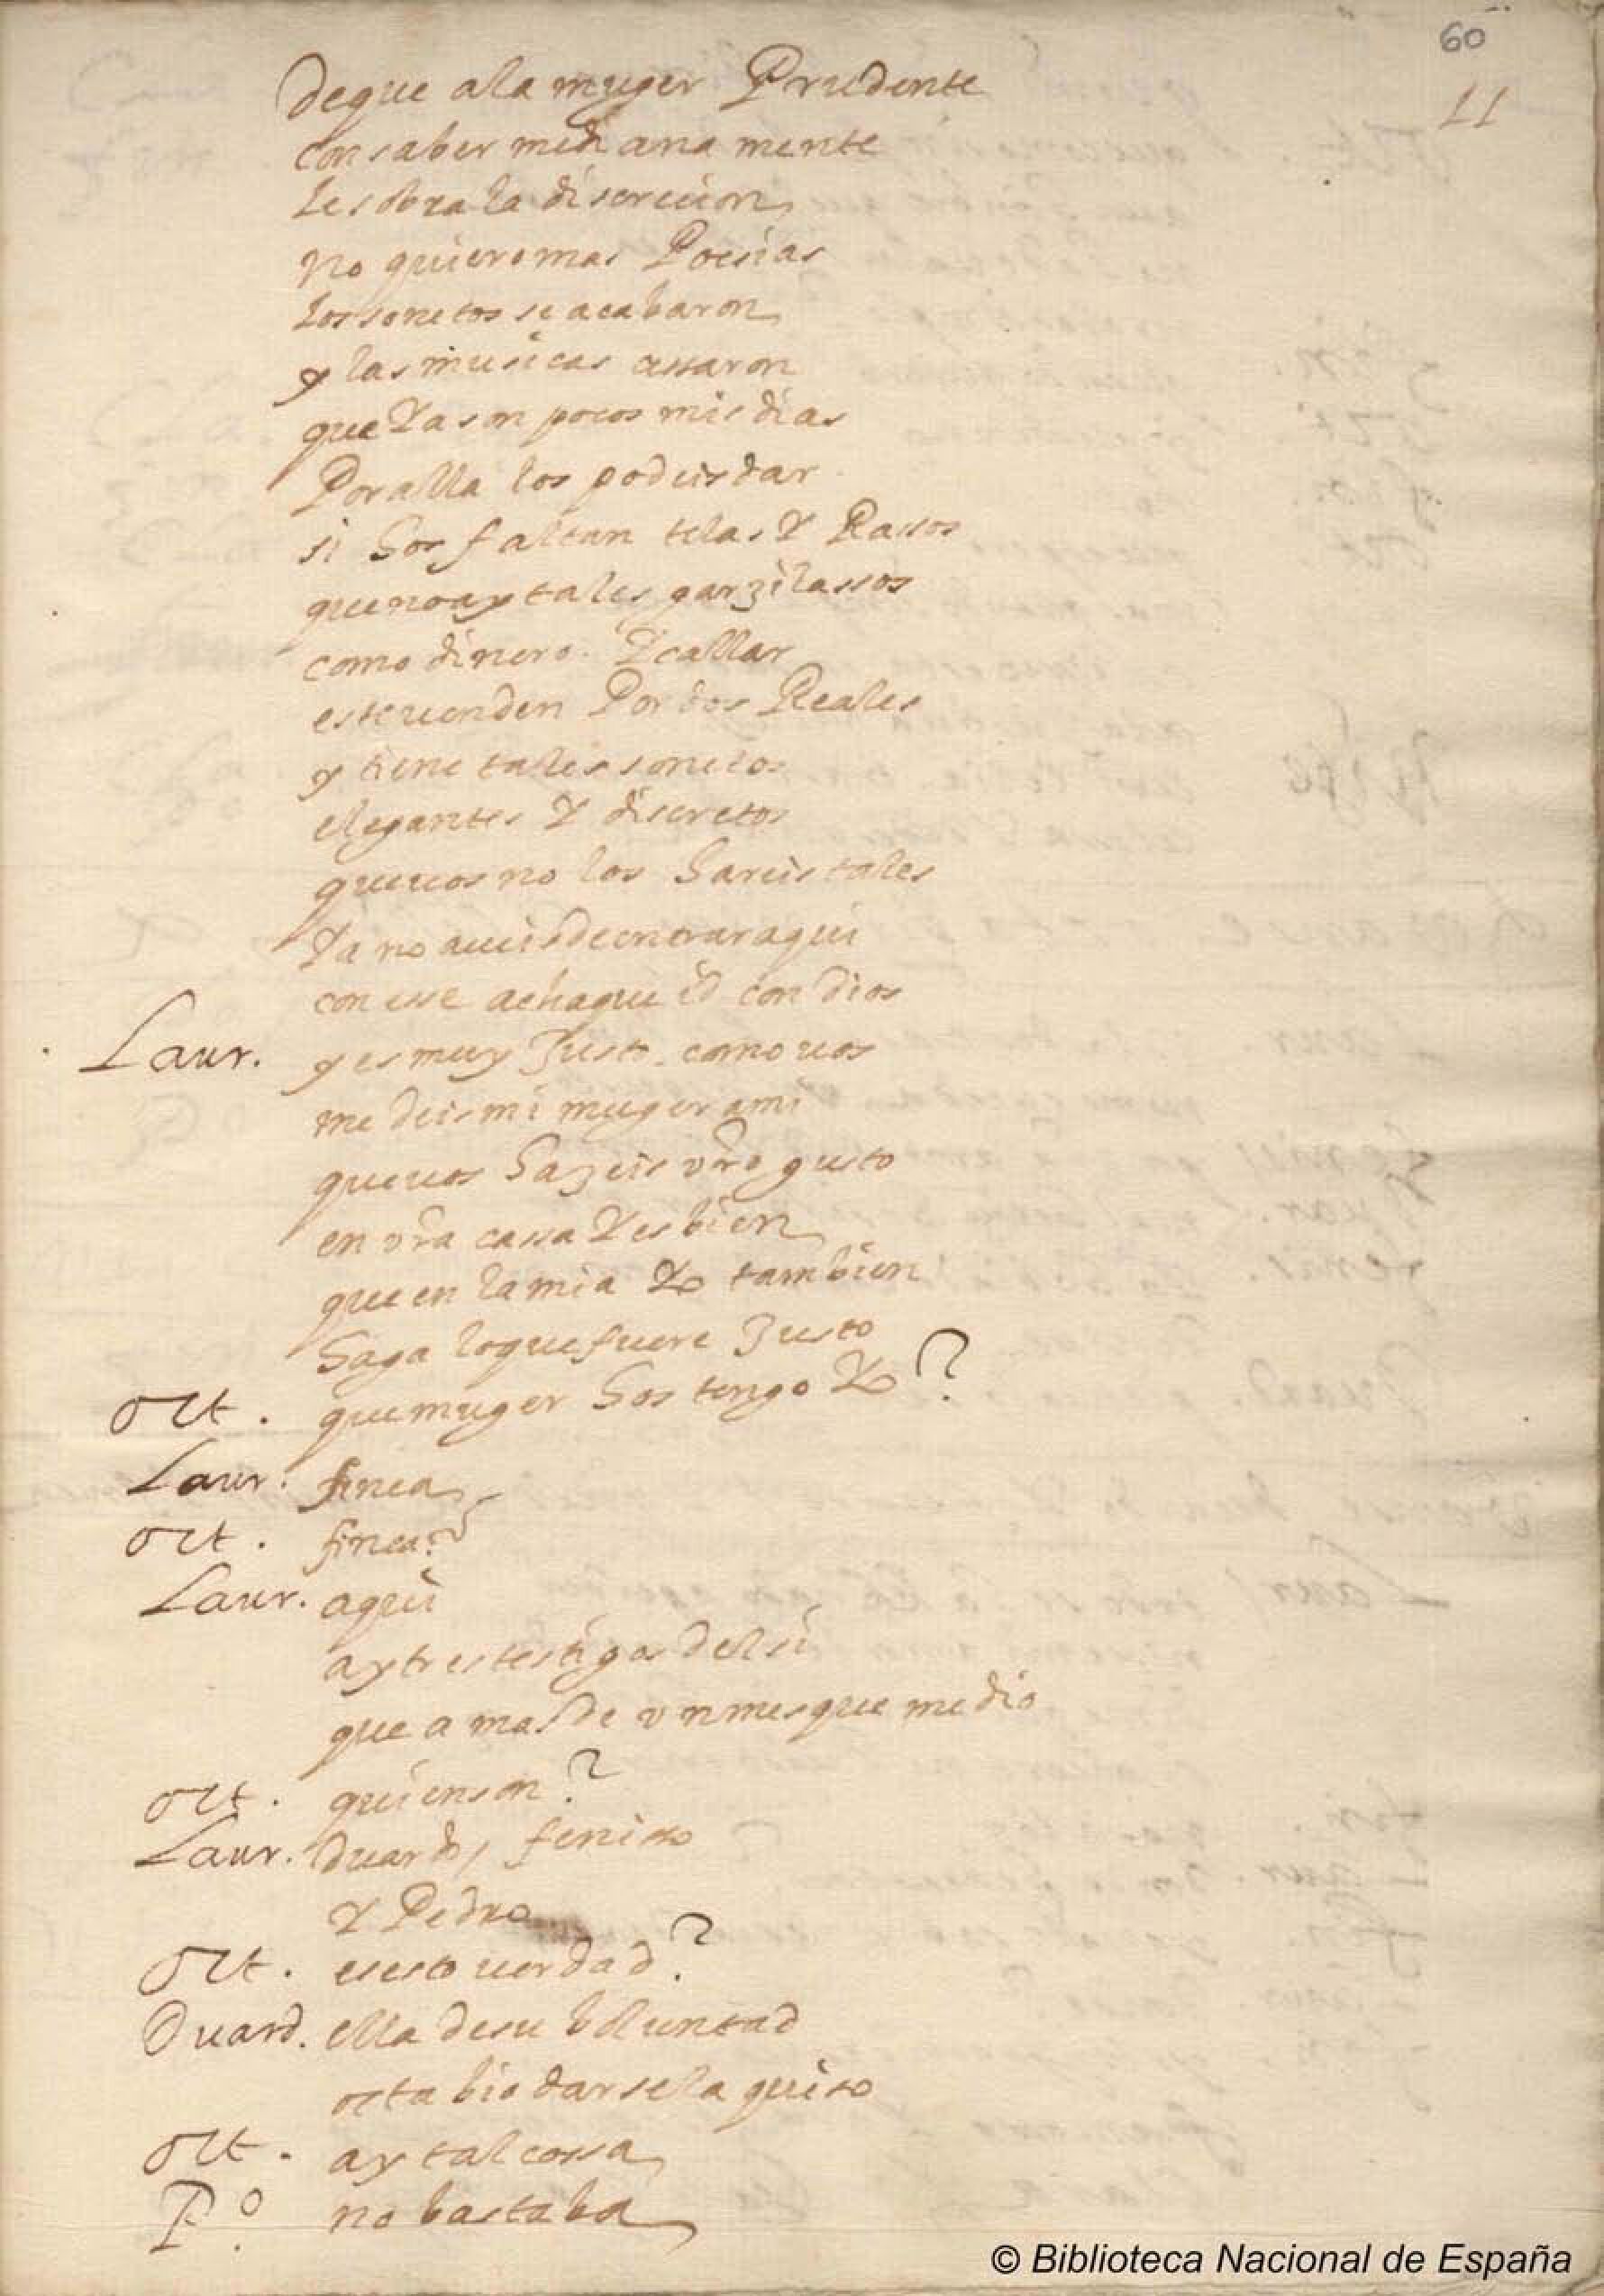 60
11
deque ala muger Prudente
con saber mediana mente
le sobra la discrecion
no quiero mas Poesias
los sonetos se acabaron
y las musicas cessaron
que Ya son pocos mis dias
Por alla los podeis dar
si hos faltan telas Y Rassos
que no ay tales garzilassos
como dinero. Y callar
este venden Por dos Reales
y tiene tales sonetos
elegantes Y discretos
que vos no los hareis tales
Ya no aueis de entrar aqui
con esse achaque id con dios
Laur. y es muy Justo como vos
me deis mi muger a mi
que vos hazeis vro gusto
en vra cassa Y es bien
que en la mia Yo tambien
haga lo que fuere Justo
oct. que muger hos tengo Yo?
Laur. finea
oct. finea?
Laur. aqui
ay tres testigos del si
que a mas de un mes que me dio
oct. quien son?
Laur. duardo, feniso
Y Pedro
oct. es esto verdad?
Duard. ella de su boluntad
octabio darsela quiso
oct. ay tal cossa
Po. no bastaba
© Biblioteca Nacional de España